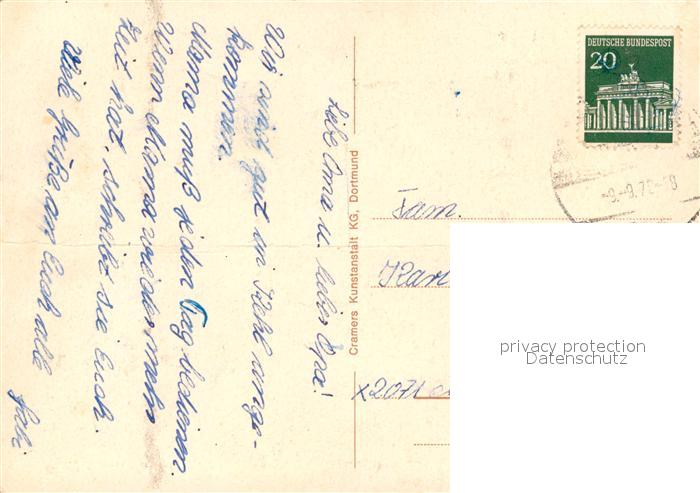 Liebe Oma u. lieber Opa!
Wir sind gut in Kehl ange-
kommen.
Mama muß jeden Tag bedienen.
Wenn Mama wieder mehr
Zeit hat, schreibt sie Euch.
Viele Grüße an Euch alle
Cramers Kunstanstalt KG, Dortmund
DEUTSCHE BUNDESPOST
20
-9.-9.72-18
Fam.
Karl
x2071
privacy protection
Datenschutz